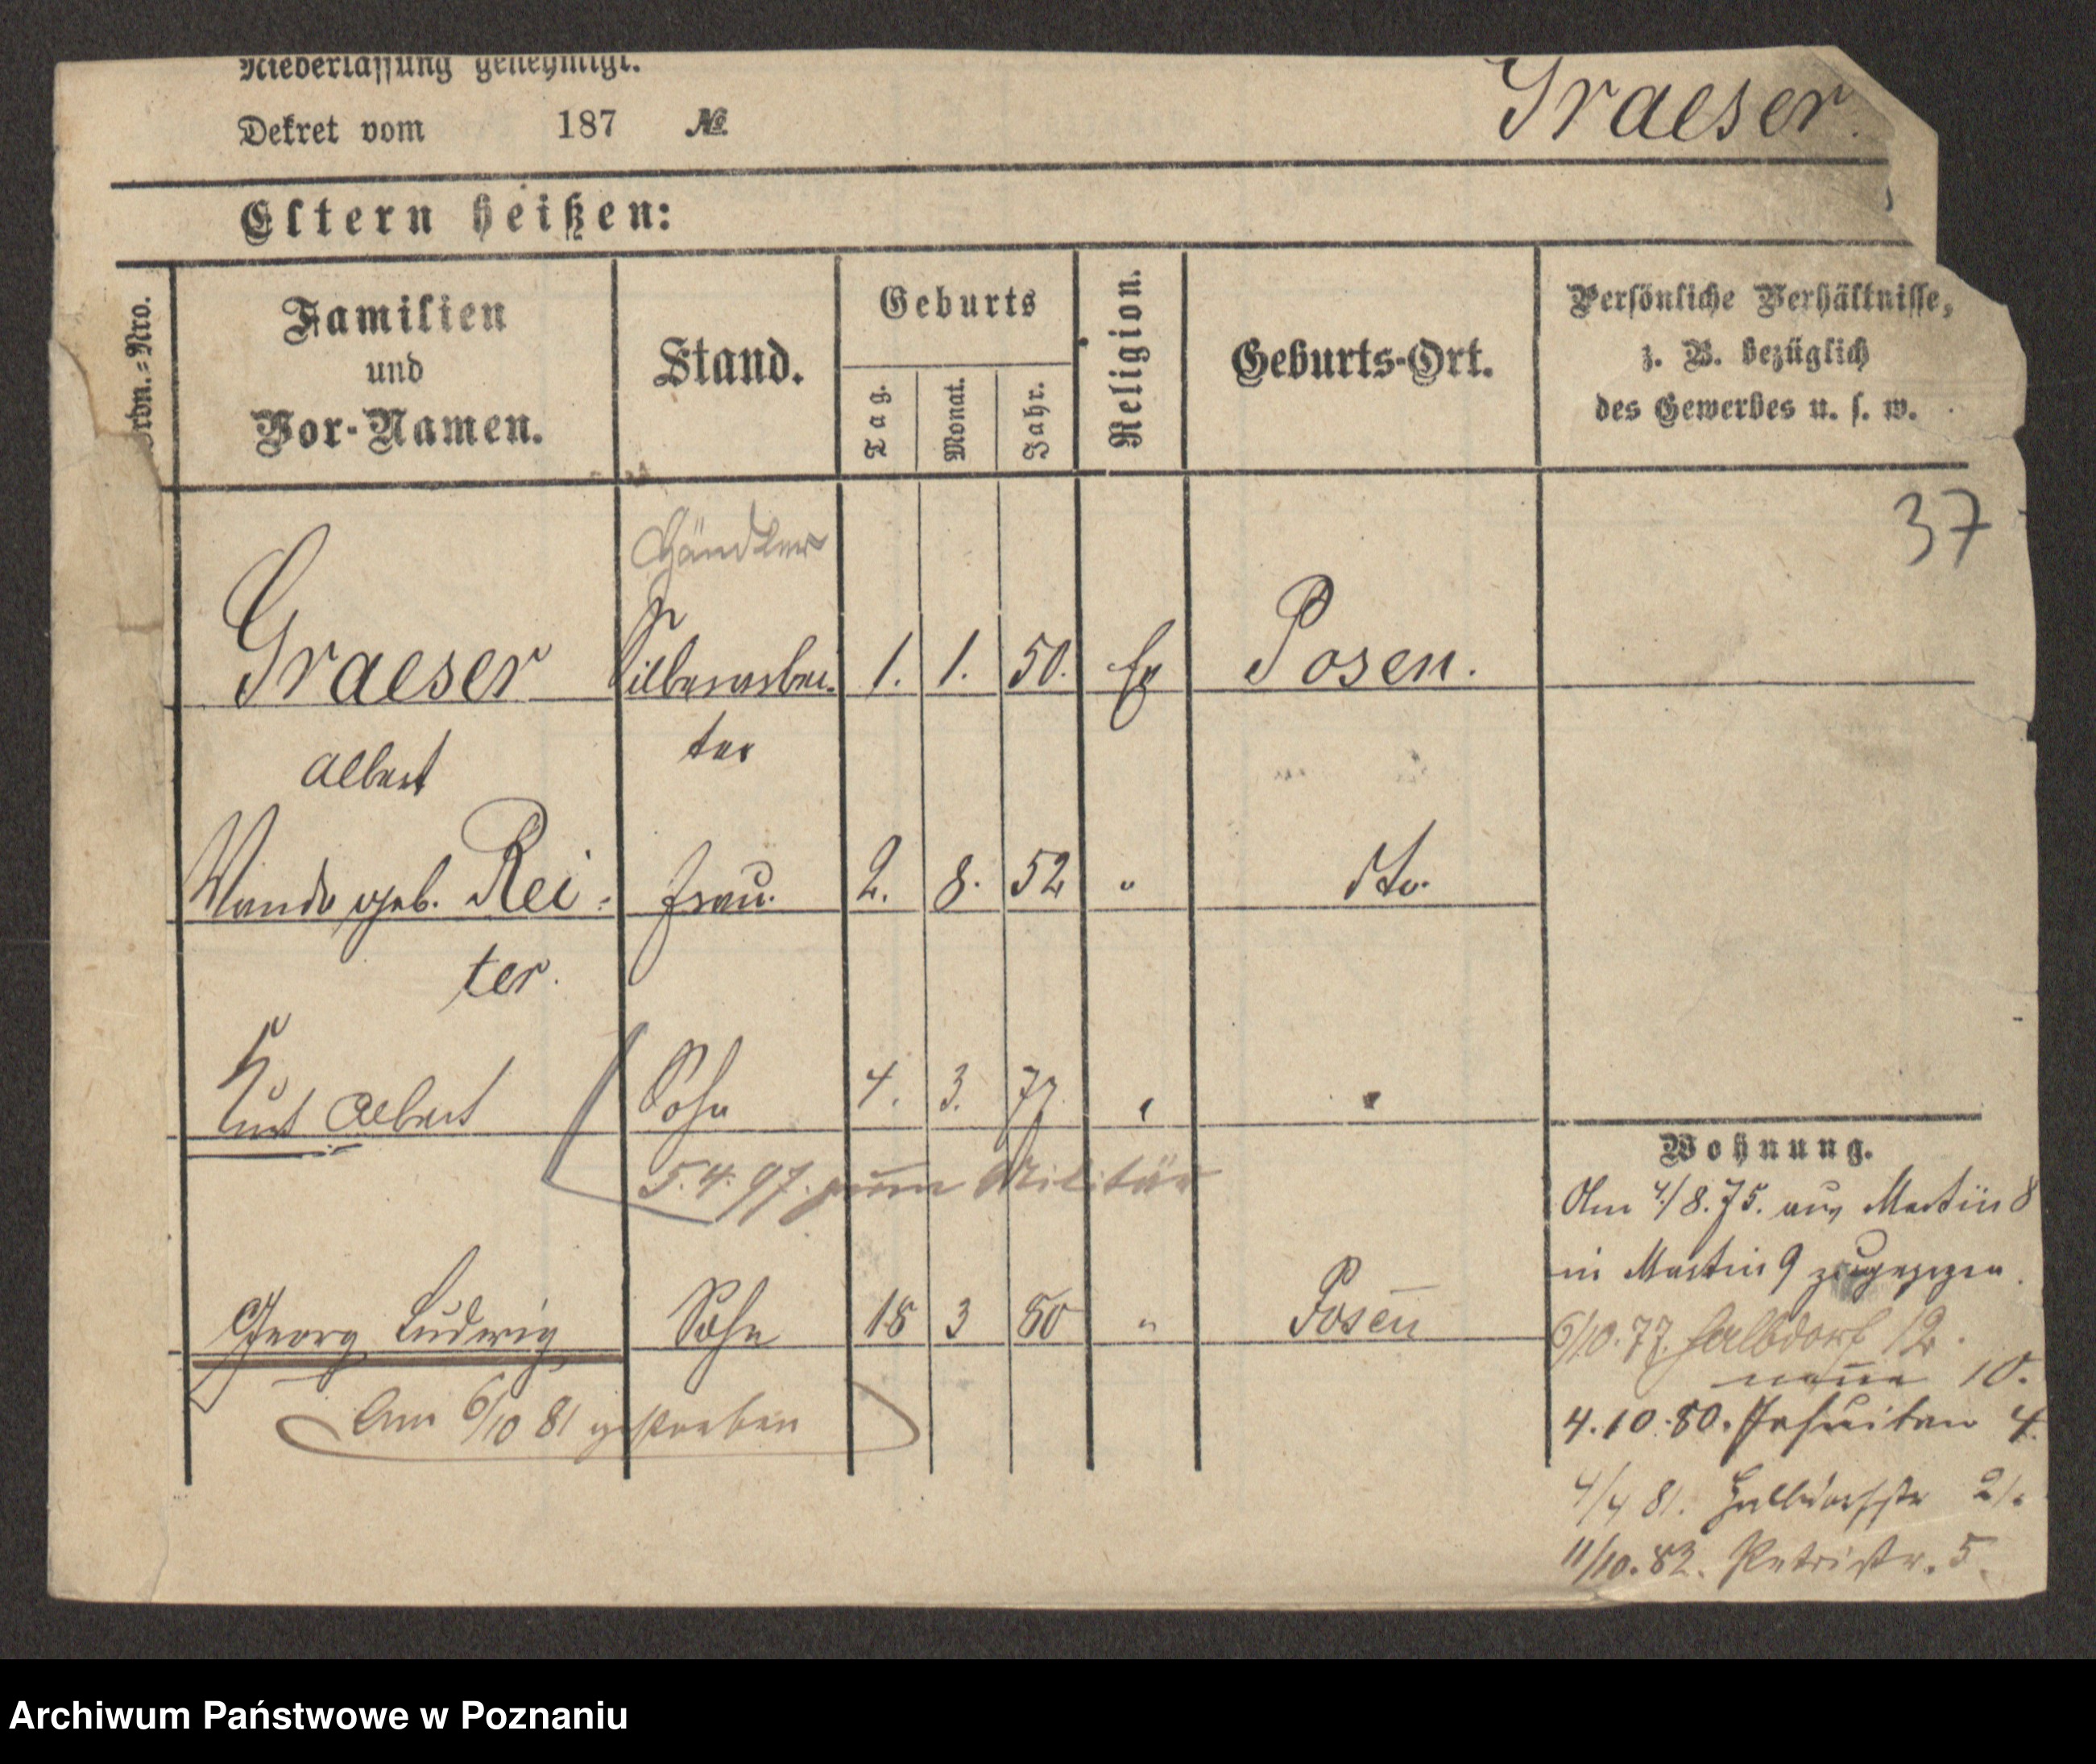 Niederlassung genehmigt.
Dekret vom 187 №
Graeser.
Eltern heißen:
Ordn.-Nro.
Familien
und
Vor-Namen.
Stand.
Geburts
Tag.
Monat.
Jahr.
Religion.
Geburts-Ort.
Persönliche Verhältnisse,
z. B. bezüglich
des Gewerbes u. s. w.
37
Händler
Graeser Silberarbei- 1. 1. 50. Ev Posen.
Albert ter
Wanda geb. Rei- Frau. 2. 8. 52 " dto.
ter.
Kurt Albert Sohn 4. 3. 77. " "
5.4.97. zum Militär
Georg Ludwig Sohn 18 3 80 " Posen
Am 6/10 81 gestorben
Wohnung.
Am 4/8.75. aus Martin 8
in Martin 9 zugezogen.
6/10.77. Halbdorf 12.
neue 10.
4.10.80. Jesuiten 4.
4/4 81. Halbdorfstr
11/10.82. Petristr. 5.
Archiwum Państwowe w Poznaniu